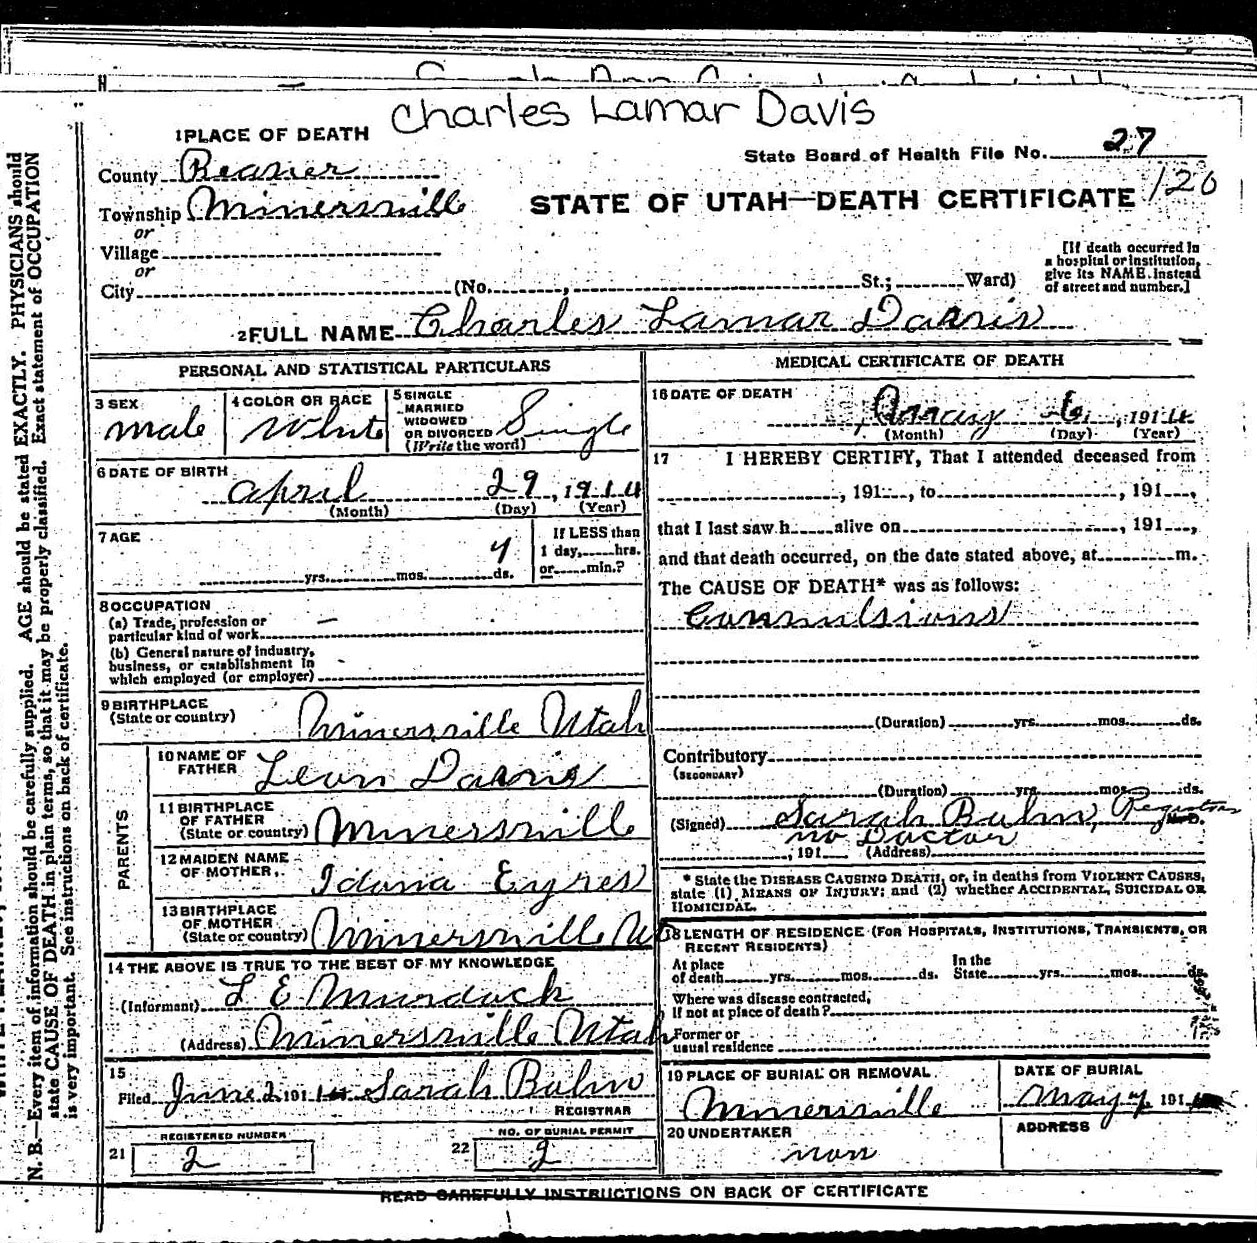 Charles Lamar Davis
1 PLACE OF DEATH
State Board of Health File No. 27
County Beaver
120
Township Minersville
STATE OF UTAH—DEATH CERTIFICATE
or
Village
or
City (No. , St.; Ward)
[If death occurred in
a hospital or institution,
give its NAME instead
of street and number.]
2 FULL NAME Charles Lamar Davis
PERSONAL AND STATISTICAL PARTICULARS
3 SEX
male
4 COLOR OR RACE
White
5 SINGLE
MARRIED
WIDOWED
OR DIVORCED
(Write the word)
Single
6 DATE OF BIRTH
April 29, 1914
(Month) (Day) (Year)
7 AGE
yrs. mos. ds.
If LESS than
1 day, hrs.
or min.?
8 OCCUPATION
(a) Trade, profession or
particular kind of work
(b) General nature of industry,
business, or establishment in
which employed (or employer)
9 BIRTHPLACE
(State or country) Minersville Utah
PARENTS
10 NAME OF
FATHER Leon Davis
11 BIRTHPLACE
OF FATHER
(State or country) Minersville
12 MAIDEN NAME
OF MOTHER Idona Eyres
13 BIRTHPLACE
OF MOTHER
(State or country) Minersville Ut
14 THE ABOVE IS TRUE TO THE BEST OF MY KNOWLEDGE
(Informant) L E Murdock
(Address) Minersville Utah
15
Filed June 2 1914 Sarah
REGISTRAR
REGISTERED NUMBER
21 2
NO. OF BURIAL PERMIT
22 2
MEDICAL CERTIFICATE OF DEATH
16 DATE OF DEATH
6, 1914
(Month) (Day) (Year)
17 I HEREBY CERTIFY, That I attended deceased from
, 191 , to , 191 ,
that I last saw h alive on , 191 ,
and that death occurred, on the date stated above, at m.
The CAUSE OF DEATH* was as follows:
Convulsions
(Duration) yrs. mos. ds.
Contributory
(SECONDARY)
(Duration) yrs. mos. ds.
(Signed) Sarah , Registrar M.D.
no Doctor
, 191 (Address)
* State the DISEASE CAUSING DEATH, or, in deaths from VIOLENT CAUSES,
state (1) MEANS OF INJURY; and (2) whether ACCIDENTAL, SUICIDAL OR
HOMICIDAL.
18 LENGTH OF RESIDENCE (FOR HOSPITALS, INSTITUTIONS, TRANSIENTS, OR
RECENT RESIDENTS)
At place
of death yrs. mos. ds.
In the
State yrs. mos. ds.
Where was disease contracted,
if not at place of death?
Former or
usual residence
19 PLACE OF BURIAL OR REMOVAL
Minersville
DATE OF BURIAL
May 7, 191
20 UNDERTAKER
non
ADDRESS
READ CAREFULLY INSTRUCTIONS ON BACK OF CERTIFICATE
N. B.—Every item of information should be carefully supplied. AGE should be stated EXACTLY. PHYSICIANS should
state CAUSE OF DEATH in plain terms, so that it may be properly classified. Exact statement of OCCUPATION
is very important. See instructions on back of certificate.